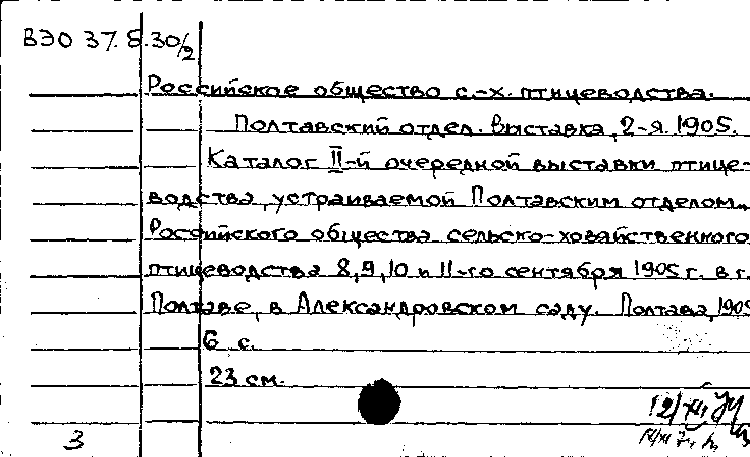 ВЭО 37.8.30/2
Российское общество с.-х. птицеводства.
Полтавский отдел. Выставка, 2-я. 1905.
Каталог II-й очередной выставки птице-
водства, устраиваемой Полтавским отделом
Российского общества сельско-хозяйственного
птицеводства 8, 9, 10 и 11-го сентября 1905 г. в г.
Полтаве, в Александровском саду. Полтава, 1905
6 с.
23 см.
3